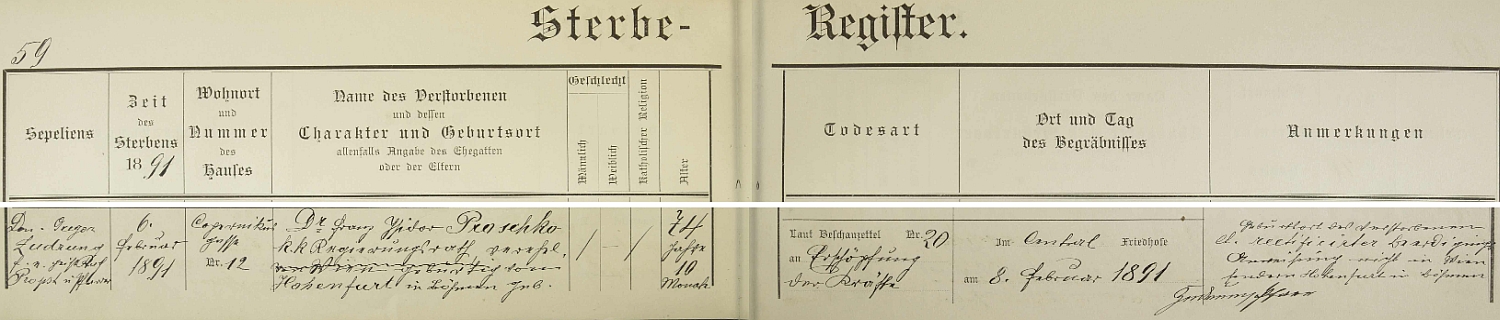 Sterbe-Register.
59
Sepeliens
Zeit
des
Sterbens
1891
Wohnort
und
Nummer
des
Hauses
Name des Verstorbenen
und dessen
Charakter und Geburtsort
allenfalls Angabe des Ehegatten
oder der Eltern
Geschlecht
Männlich
Weiblich
Katholischer Religion
Alter
Todesart
Ort und Tag
des Begräbnisses
Anmerkungen
6.
Februar
1891
Copernikus
gasse
Nr. 12
Dr Franz Isidor Proschko
k.k. Regierungsrath, verehel.
gebürtig von
Hohenfurt in Böhmen geb.
/ – /
74
Jahre
10
Monate
Laut Beschauzettel Nr. 20
an Erschöpfung
der Kräfte
Im Central Friedhofe
am 8. Februar 1891
Geburtsort des Verstorbenen
rectificirter Beerdigungs
Anweisung nicht in Wien
sondern Hohenfurt in Böhmen